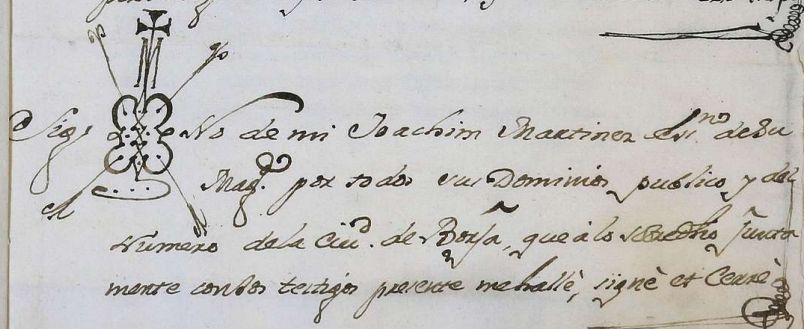 Sig No de mi Joachim Martinez Esn.no de Su
Mag.d por todos sus Dominios publico, y del
Numero de la Ciu.d de Borja, que à lo sobredho junta
mente con los testigos presente me hallè, signè et Cerrè